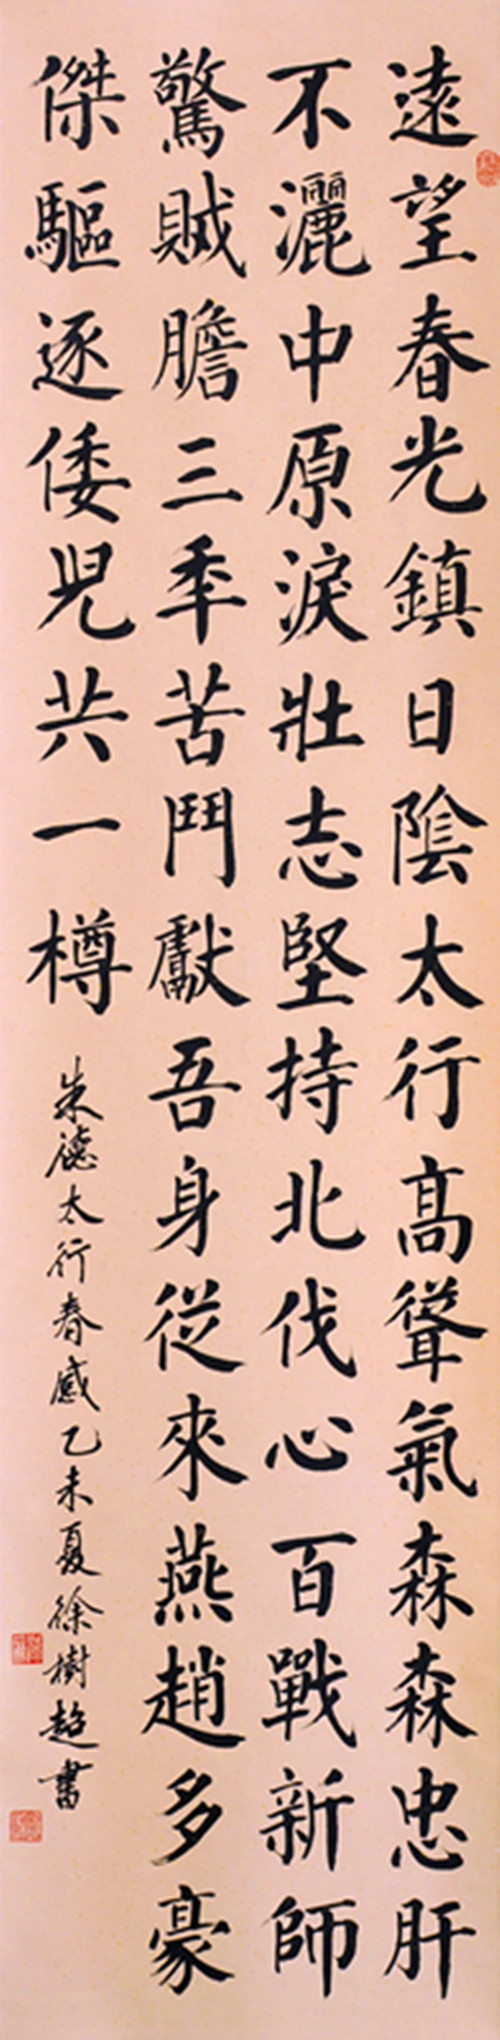 遠望春光鎮日陰太行高聳氣森森忠肝
不灑中原淚壯志堅持北伐心百戰新師
驚賊膽三年苦鬥獻吾身從來燕趙多豪
傑驅逐倭兒共一樽
朱德太行春感乙未夏徐樹超書